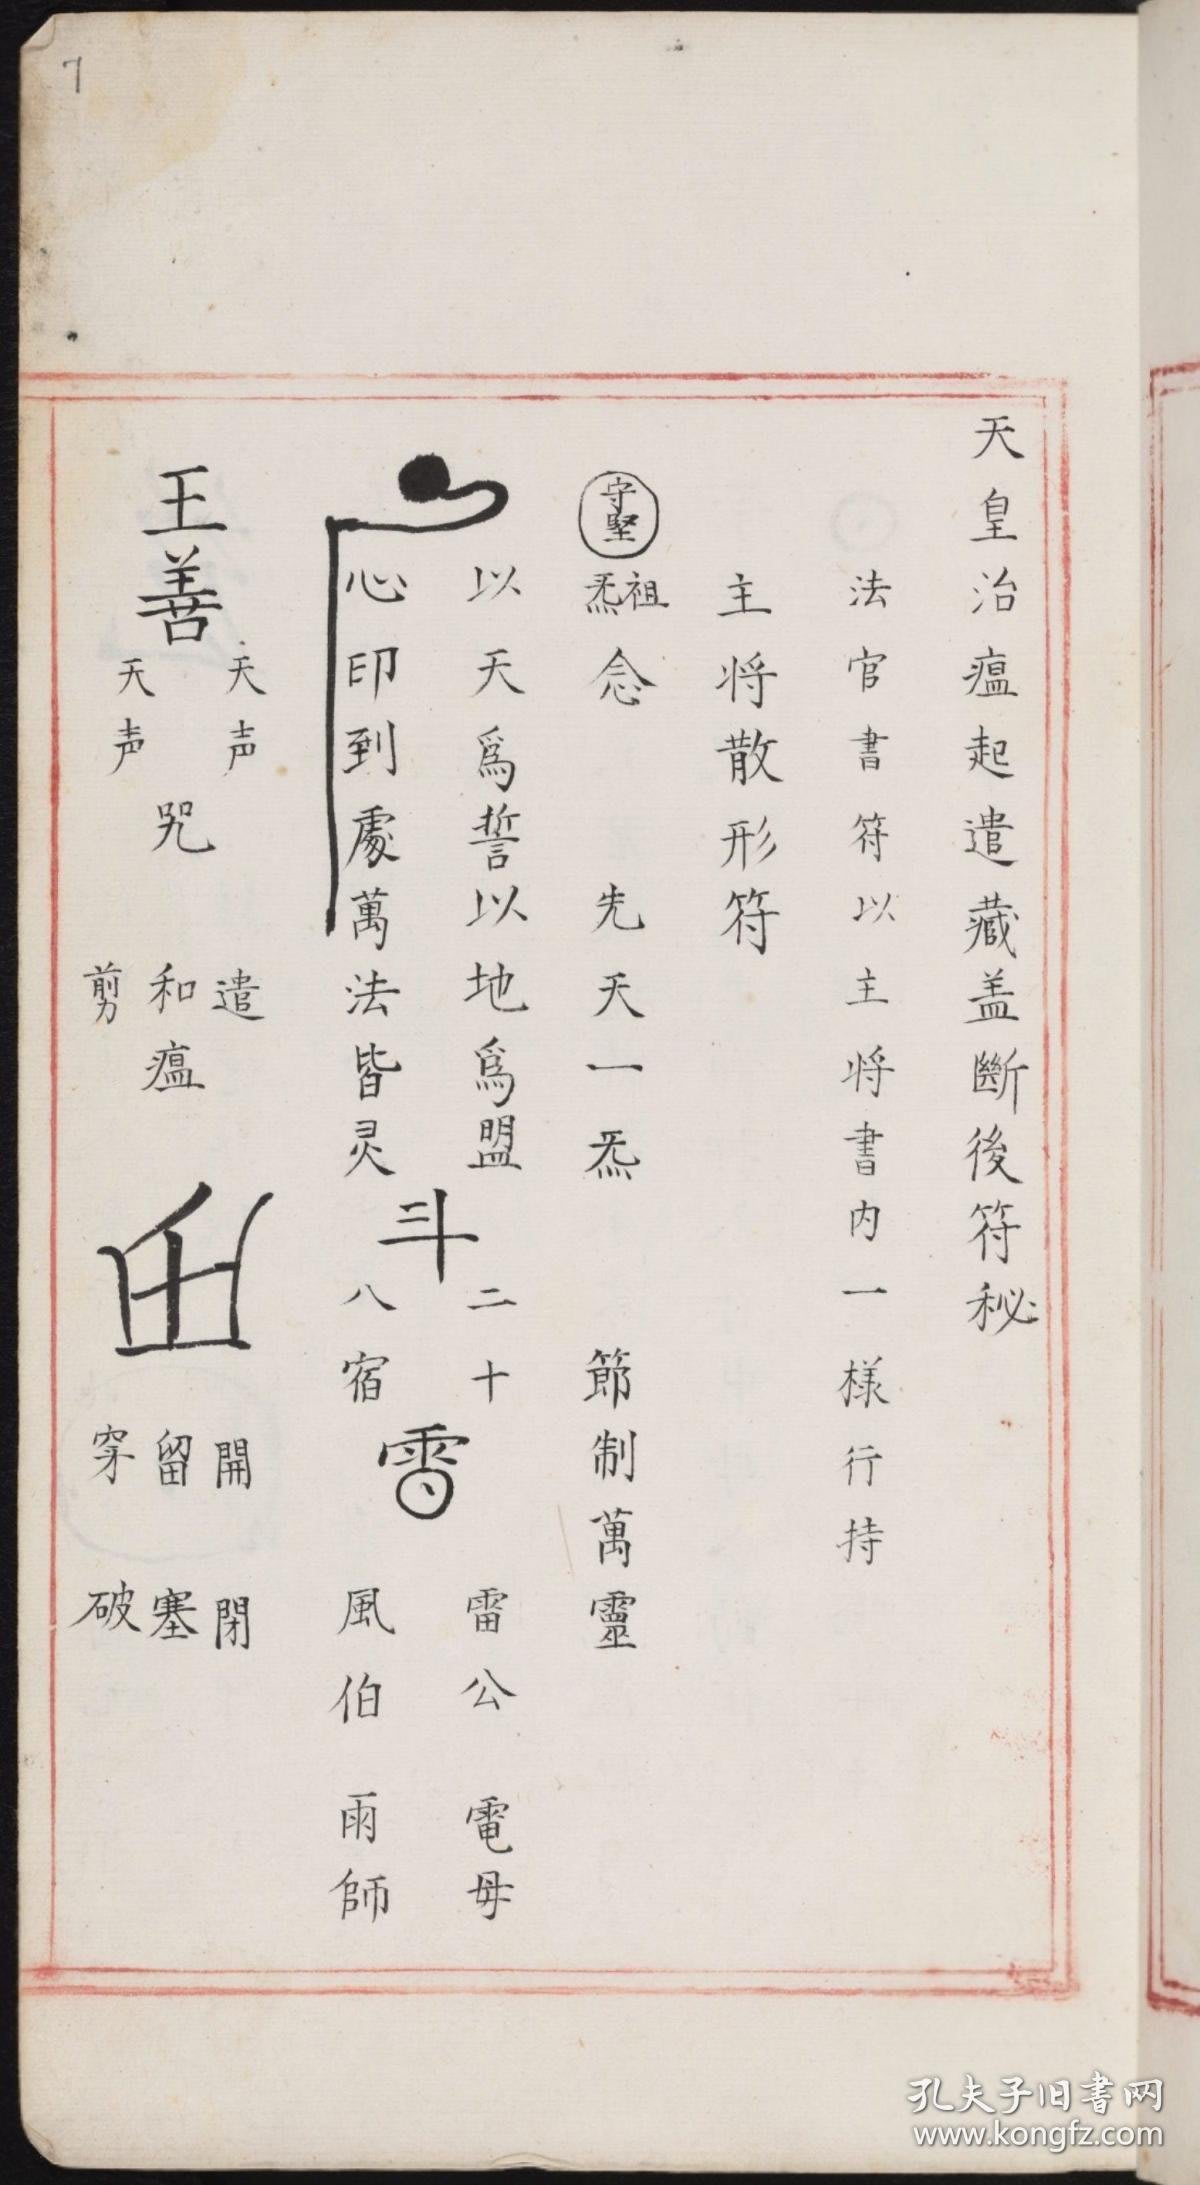 7
天皇治瘟起遣藏盖斷後符秘
法官書符以主將書内一樣行持
主將散形符
守堅
祖炁念 先天一炁 節制萬靈
以天爲誓以地爲盟
心印到處萬法皆灵
斗
二十
八宿
雷公 電母
風伯 雨師
王善
天声
天声
咒
遣
和瘟
剪
開 閉
留 塞
穿 破
孔夫子旧書网
www.kongfz.com